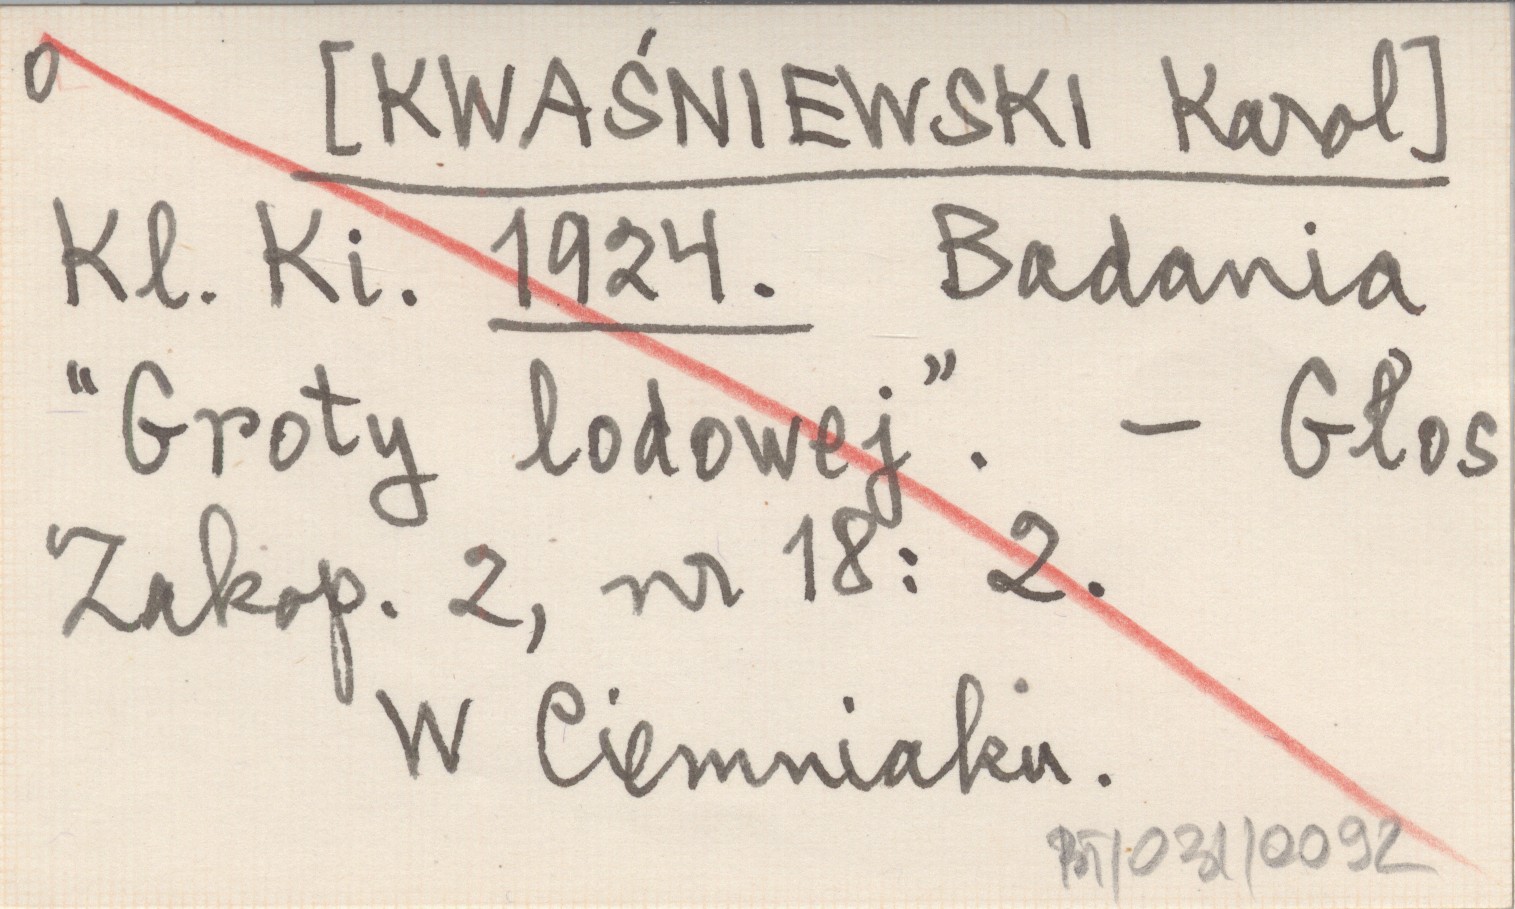 0 [KWAŚNIEWSKI Karol]
Kl. Ki. 1924. Badania
"Groty lodowej". – Głos
Zakop. 2, nr 18: 2.
W Ciemniaku.
BT/031/0092